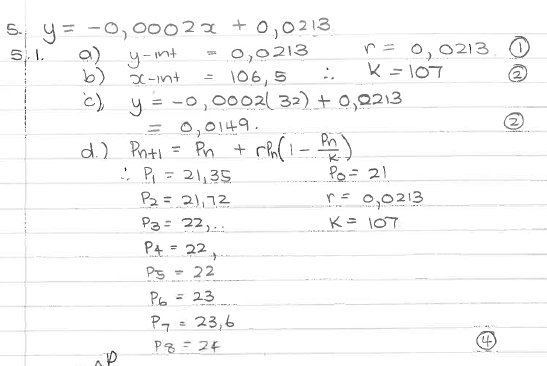 5. y = -0,0002x + 0,0213
5.1. a) y-int = 0,0213 r = 0,0213 ①
b) x-int = 106,5 ∴ K = 107 ②
c) y = -0,0002(32) + 0,0213
= 0,0149. ②
d.) Pn+1 = Pn + rPn(1 - Pn/K)
∴ P1 = 21,35 P0 = 21
P2 = 21,72 r = 0,0213
P3 = 22,... K = 107
P4 = 22,
P5 = 22
P6 = 23
P7 = 23,6
P8 = 24 ④
P